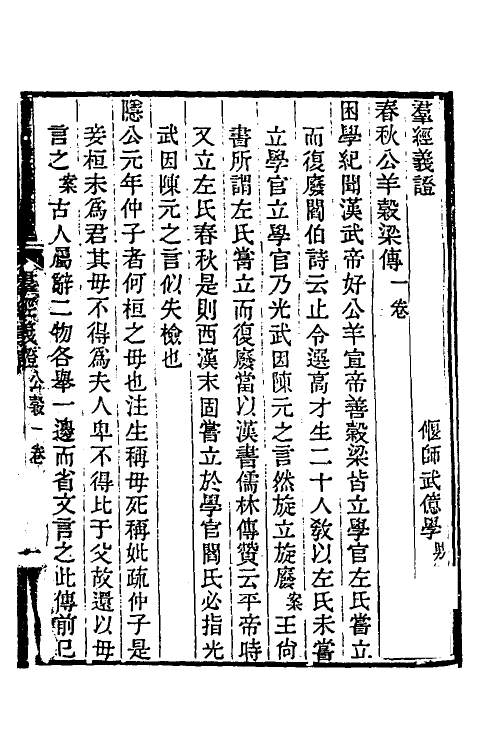 羣經義證
偃師武億學
春秋公羊穀梁傳一卷
困學紀聞漢武帝好公羊宣帝善穀梁皆立學官左氏嘗立
而復廢閻伯詩云止令選高才生二十人敎以左氏未嘗
立學官立學官乃光武因陳元之言然旋立旋廢案王尙
書所謂左氏嘗立而復廢當以漢書儒林傳贊云平帝時
又立左氏春秋是則西漢末固嘗立於學官閻氏必指光
武因陳元之言似失檢也
隱公元年仲子者何桓之母也注生稱母死稱妣疏仲子是
妾桓未爲君其母不得爲夫人卑不得比于父故還以母
言之案古人屬辭二物各舉一邊而省文言之此傳前已
羣經義證
公穀一卷
一